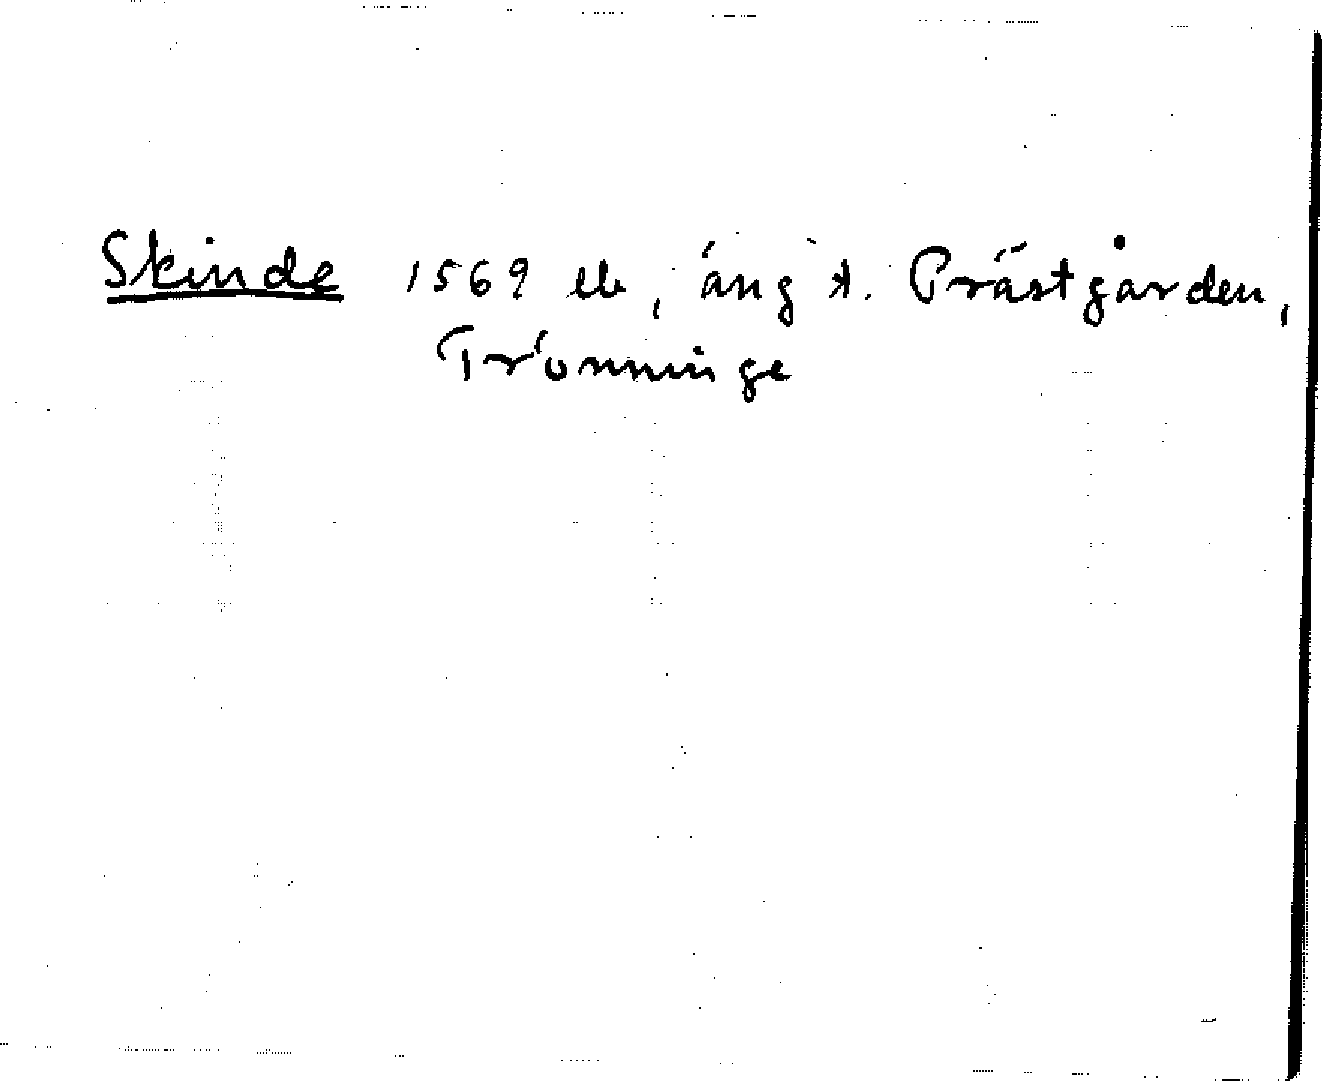 Skinde 1569 elb, äng t. Prästgården,
Trönninge